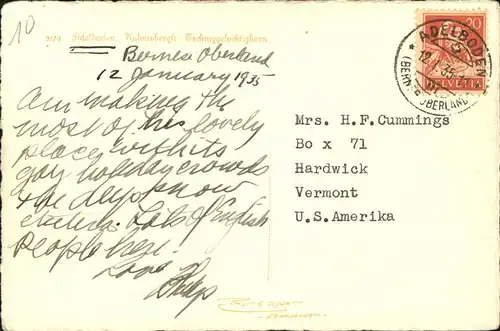 10
Adelboden. Kuhnisbergli Tschingellochtighorn
Bernese Oberland
12 January 1935
Am making the
most of this lovely
place with its
gay holiday crowds
& the deep snow
etcetera. Lots of English
people here.
Love
Mrs. H.F.Cummings
Box x 71
Hardwick
Vermont
U.S.Amerika
20
HELVETIA
ADELBODEN
12.I.35
(BERNER OBERLAND)